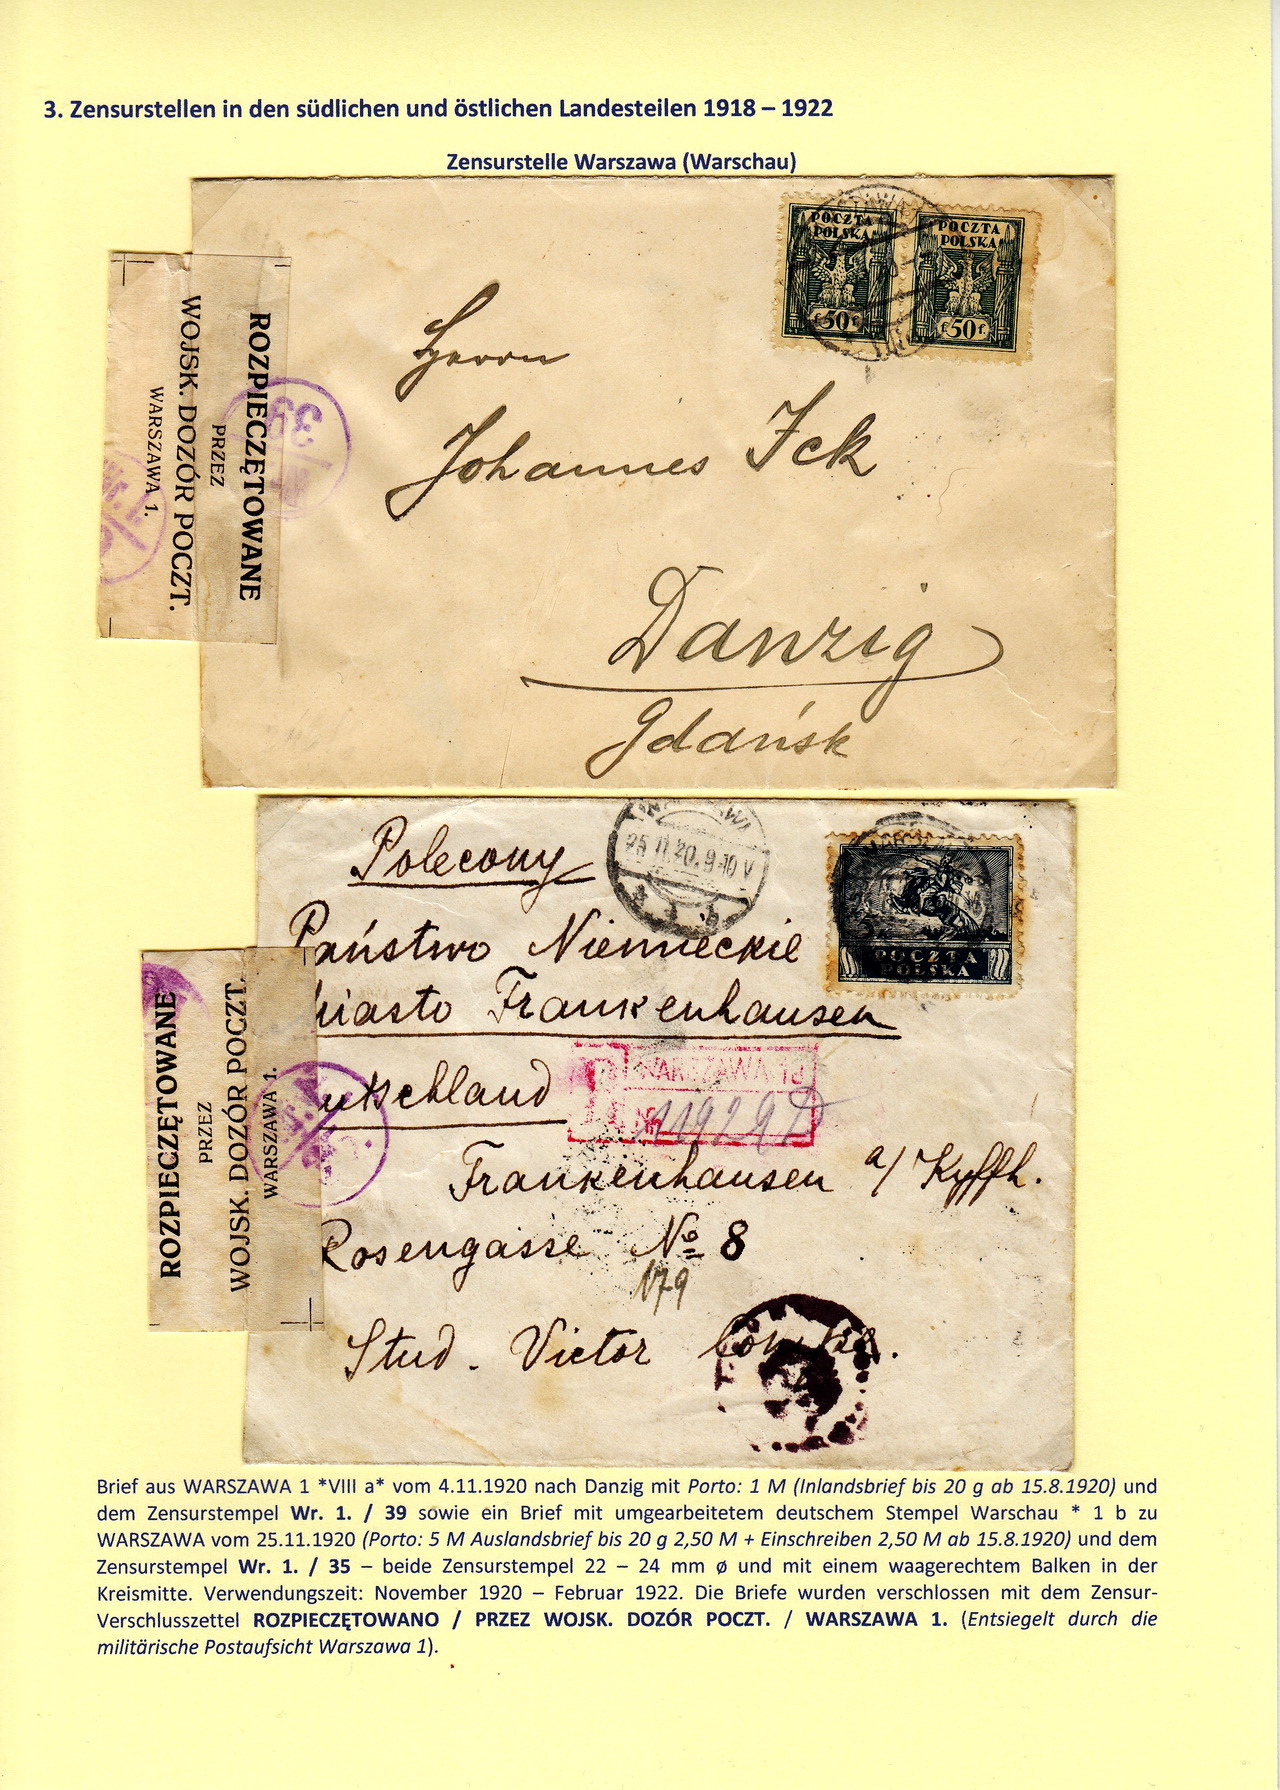 3. Zensurstellen in den südlichen und östlichen Landesteilen 1918 – 1922
Zensurstelle Warszawa (Warschau)
POCZTA
POLSKA
50 f.
POCZTA
POLSKA
f 50 f.
ROZPIECZĘTOWANE
PRZEZ
WOJSK. DOZÓR POCZT.
WARSZAWA 1.
39
Herrn
Johannes Ick
Danzig
Gdańsk
Polecony
25.11.20.9-10 V
POCZTA
POLSKA
Państwo Niemieckie
Miasto Frankenhausen
utschland
WARSZAWA
11929
Frankenhausen a/ Kyffh.
Rosengasse No 8
179
Stud. Victor
ROZPIECZĘTOWANE
PRZEZ
WOJSK. DOZÓR POCZT.
WARSZAWA 1.
Brief aus WARSZAWA 1 *VIII a* vom 4.11.1920 nach Danzig mit Porto: 1 M (Inlandsbrief bis 20 g ab 15.8.1920) und
dem Zensurstempel Wr. 1. / 39 sowie ein Brief mit umgearbeitetem deutschem Stempel Warschau * 1 b zu
WARSZAWA vom 25.11.1920 (Porto: 5 M Auslandsbrief bis 20 g 2,50 M + Einschreiben 2,50 M ab 15.8.1920) und dem
Zensurstempel Wr. 1. / 35 – beide Zensurstempel 22 – 24 mm ø und mit einem waagerechtem Balken in der
Kreismitte. Verwendungszeit: November 1920 – Februar 1922. Die Briefe wurden verschlossen mit dem Zensur-
Verschlusszettel ROZPIECZĘTOWANO / PRZEZ WOJSK. DOZÓR POCZT. / WARSZAWA 1. (Entsiegelt durch die
militärische Postaufsicht Warszawa 1).